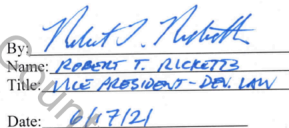 By: Robert T. Ricketts
Name: ROBERT T. RICKETTS
Title: VICE PRESIDENT - DEV. LAW
Date: 6/17/21